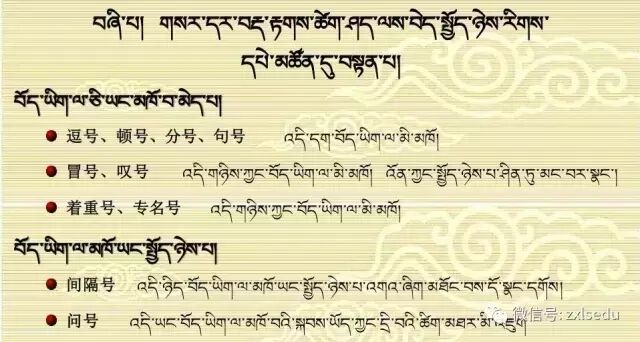 བཞི་པ། གསར་དར་བརྡ་རྟགས་ཚེག་ཤད་ལས་བེད་སྤྱོད་ཉེས་རིགས་
དཔེ་མཚོན་དུ་བསྟན་པ།
བོད་ཡིག་ལ་ཅི་ཡང་མཁོ་བ་མེད་པ།
逗号、顿号、分号、句号 འདི་དག་བོད་ཡིག་ལ་མི་མཁོ།
冒号、叹号 འདི་གཉིས་ཀྱང་བོད་ཡིག་ལ་མི་མཁོ། འོན་ཀྱང་སྤྱོད་ཉེས་པ་ཤིན་ཏུ་མང་བར་སྣང་།
着重号、专名号 འདི་གཉིས་ཀྱང་བོད་ཡིག་ལ་མི་མཁོ།
བོད་ཡིག་ལ་མཁོ་ཡང་སྤྱོད་ཉེས་པ།
间隔号 འདི་ཉིད་བོད་ཡིག་ལ་མཁོ་ཡང་སྤྱོད་ཉེས་པ་འགའ་ཞིག་མཐོང་བས་དོ་སྣང་དགོས།
问号 འདི་ཡང་བོད་ཡིག་ལ་མཁོ་བའི་སྐབས་ཡོད་ཀྱང་དྲི་བའི་ཚིག་མཐར་མི་འཇུག
微信号: zxlsedu